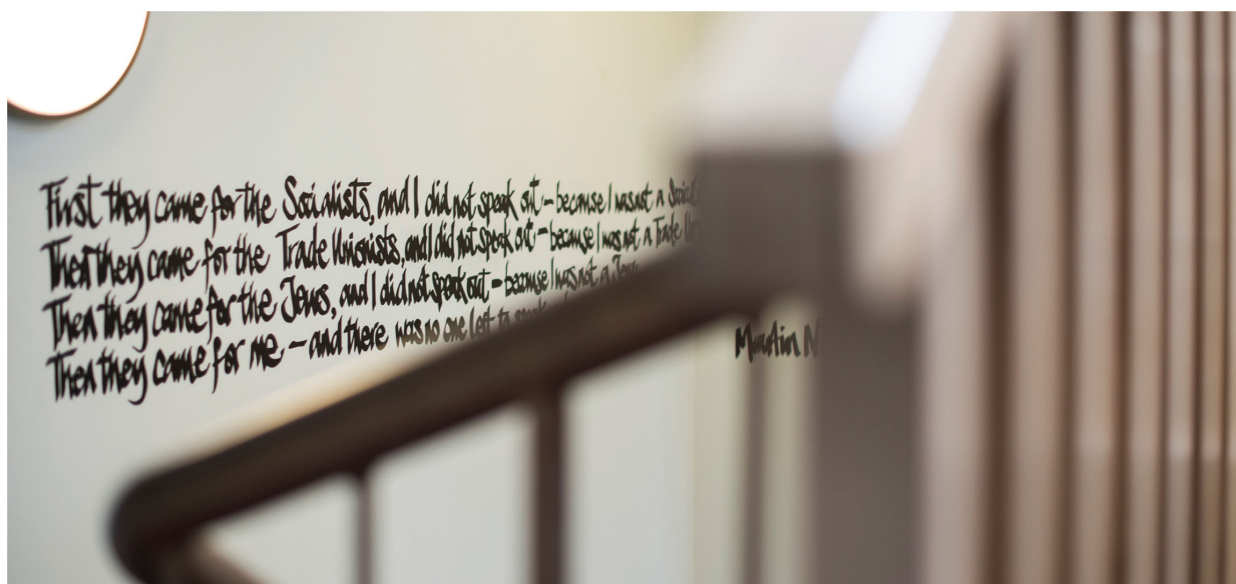 First they came for the Socialists, and I did not speak out – because I was not a
Then they came for the Trade Unionists, and I did not speak out – because I was not a Trade
Then they came for the Jews, and I did not speak out – because I was not a Jew
Then they came for me – and there was no one left to speak
Martin N